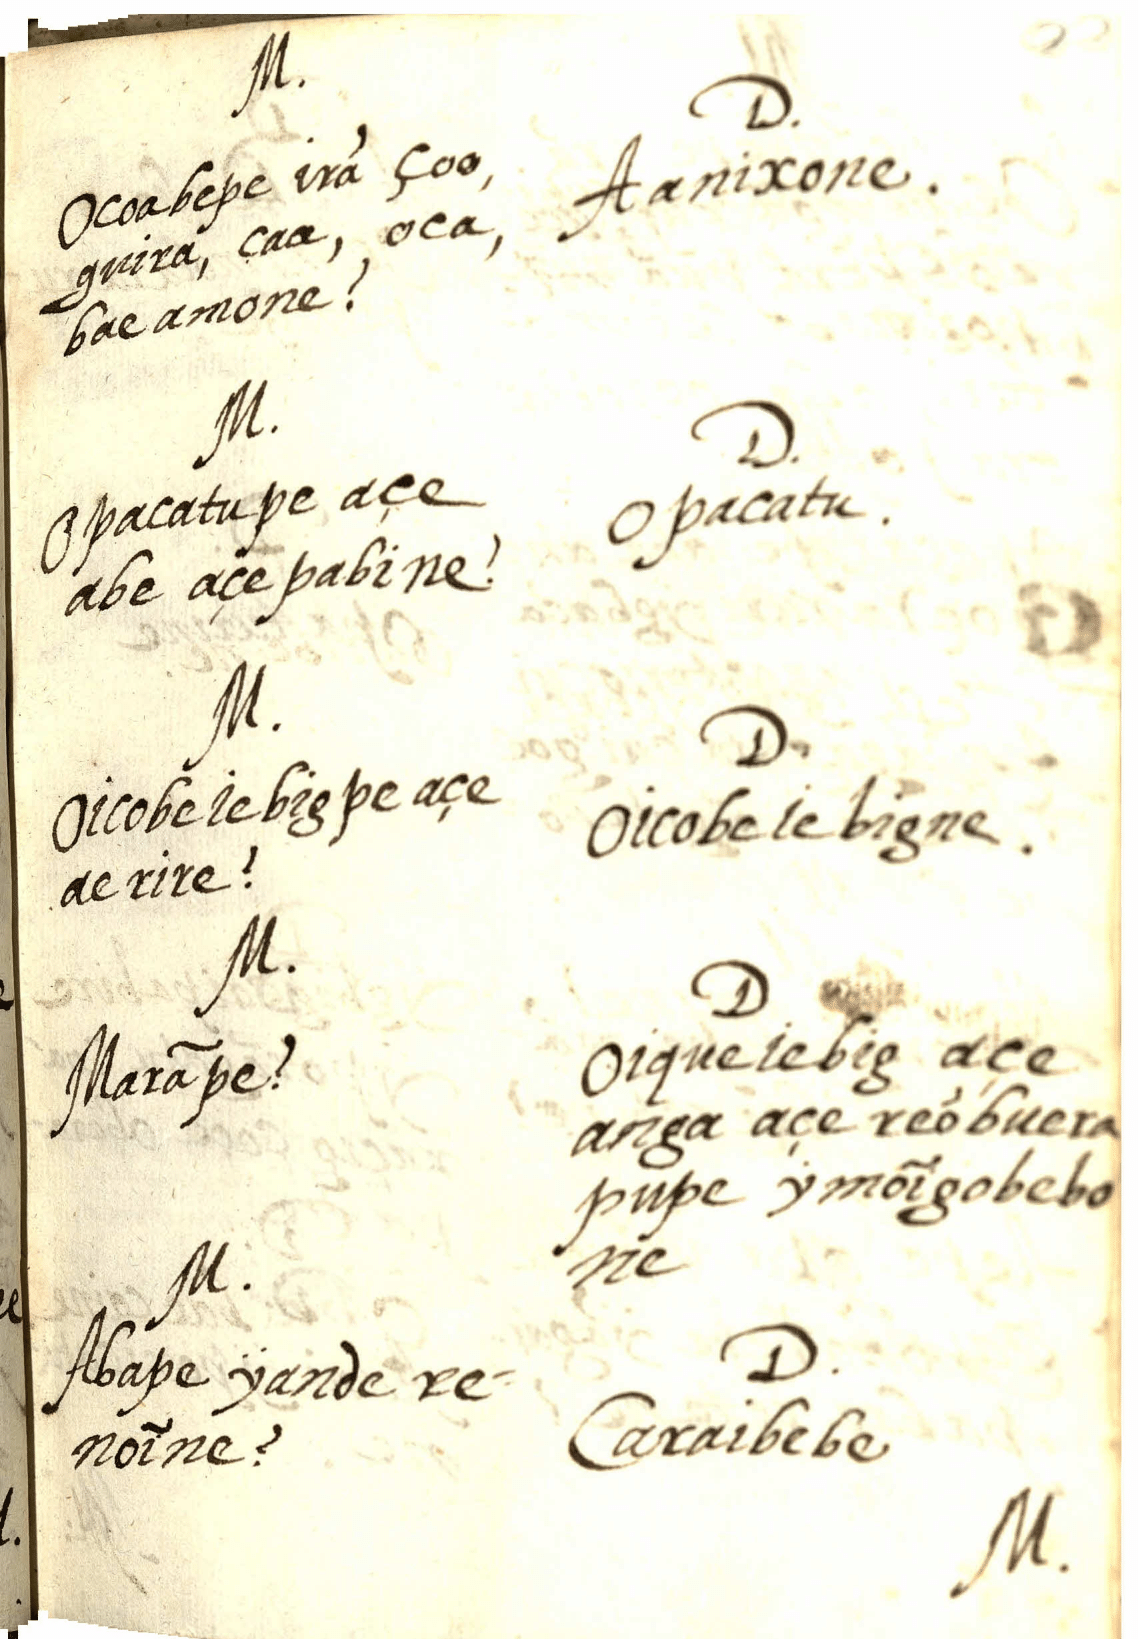 M.
Ocoabepe irã ço̧o,
guira, caa, oca,
bae amone?
D.
Aanixone.
M.
Opacatupe açe
abe açe pabine?
D.
Opacatu.
M.
Oicobe iebig pe açe
ae rire?
D.
Oicobe iebigne.
M.
Marãpe?
D
Oique iebig açe
anga açe reõbuera
pupe ỹmoĩgobebo
ne
M.
Abape ÿande re-
noĩne?
D.
Caraibebe
M.